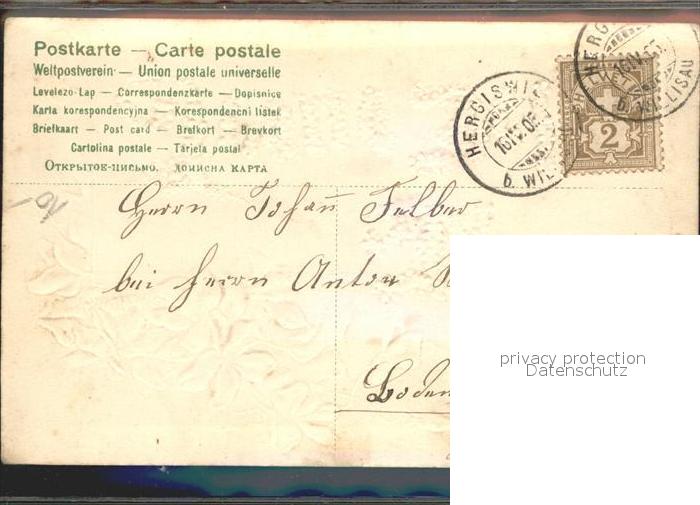 Postkarte — Carte postale
Weltpostverein — Union postale universelle
Levelezo-Lap — Correspondenzkarte — Dopisnice
Karta korespondencyjna — Korespondencni listek
Briefkaart — Post card — Brefkort — Brevkort
Cartolina postale — Tarjeta postal
Открытое-письмо. дописна карта
HERGISWIL
16.IV.05
b. WIL
HERGIS
16.IV.05
b. WILLISAU
2
10
Herrn Johan̄ Felber
bei Herrn Anton
Boden
privacy protection
Datenschutz